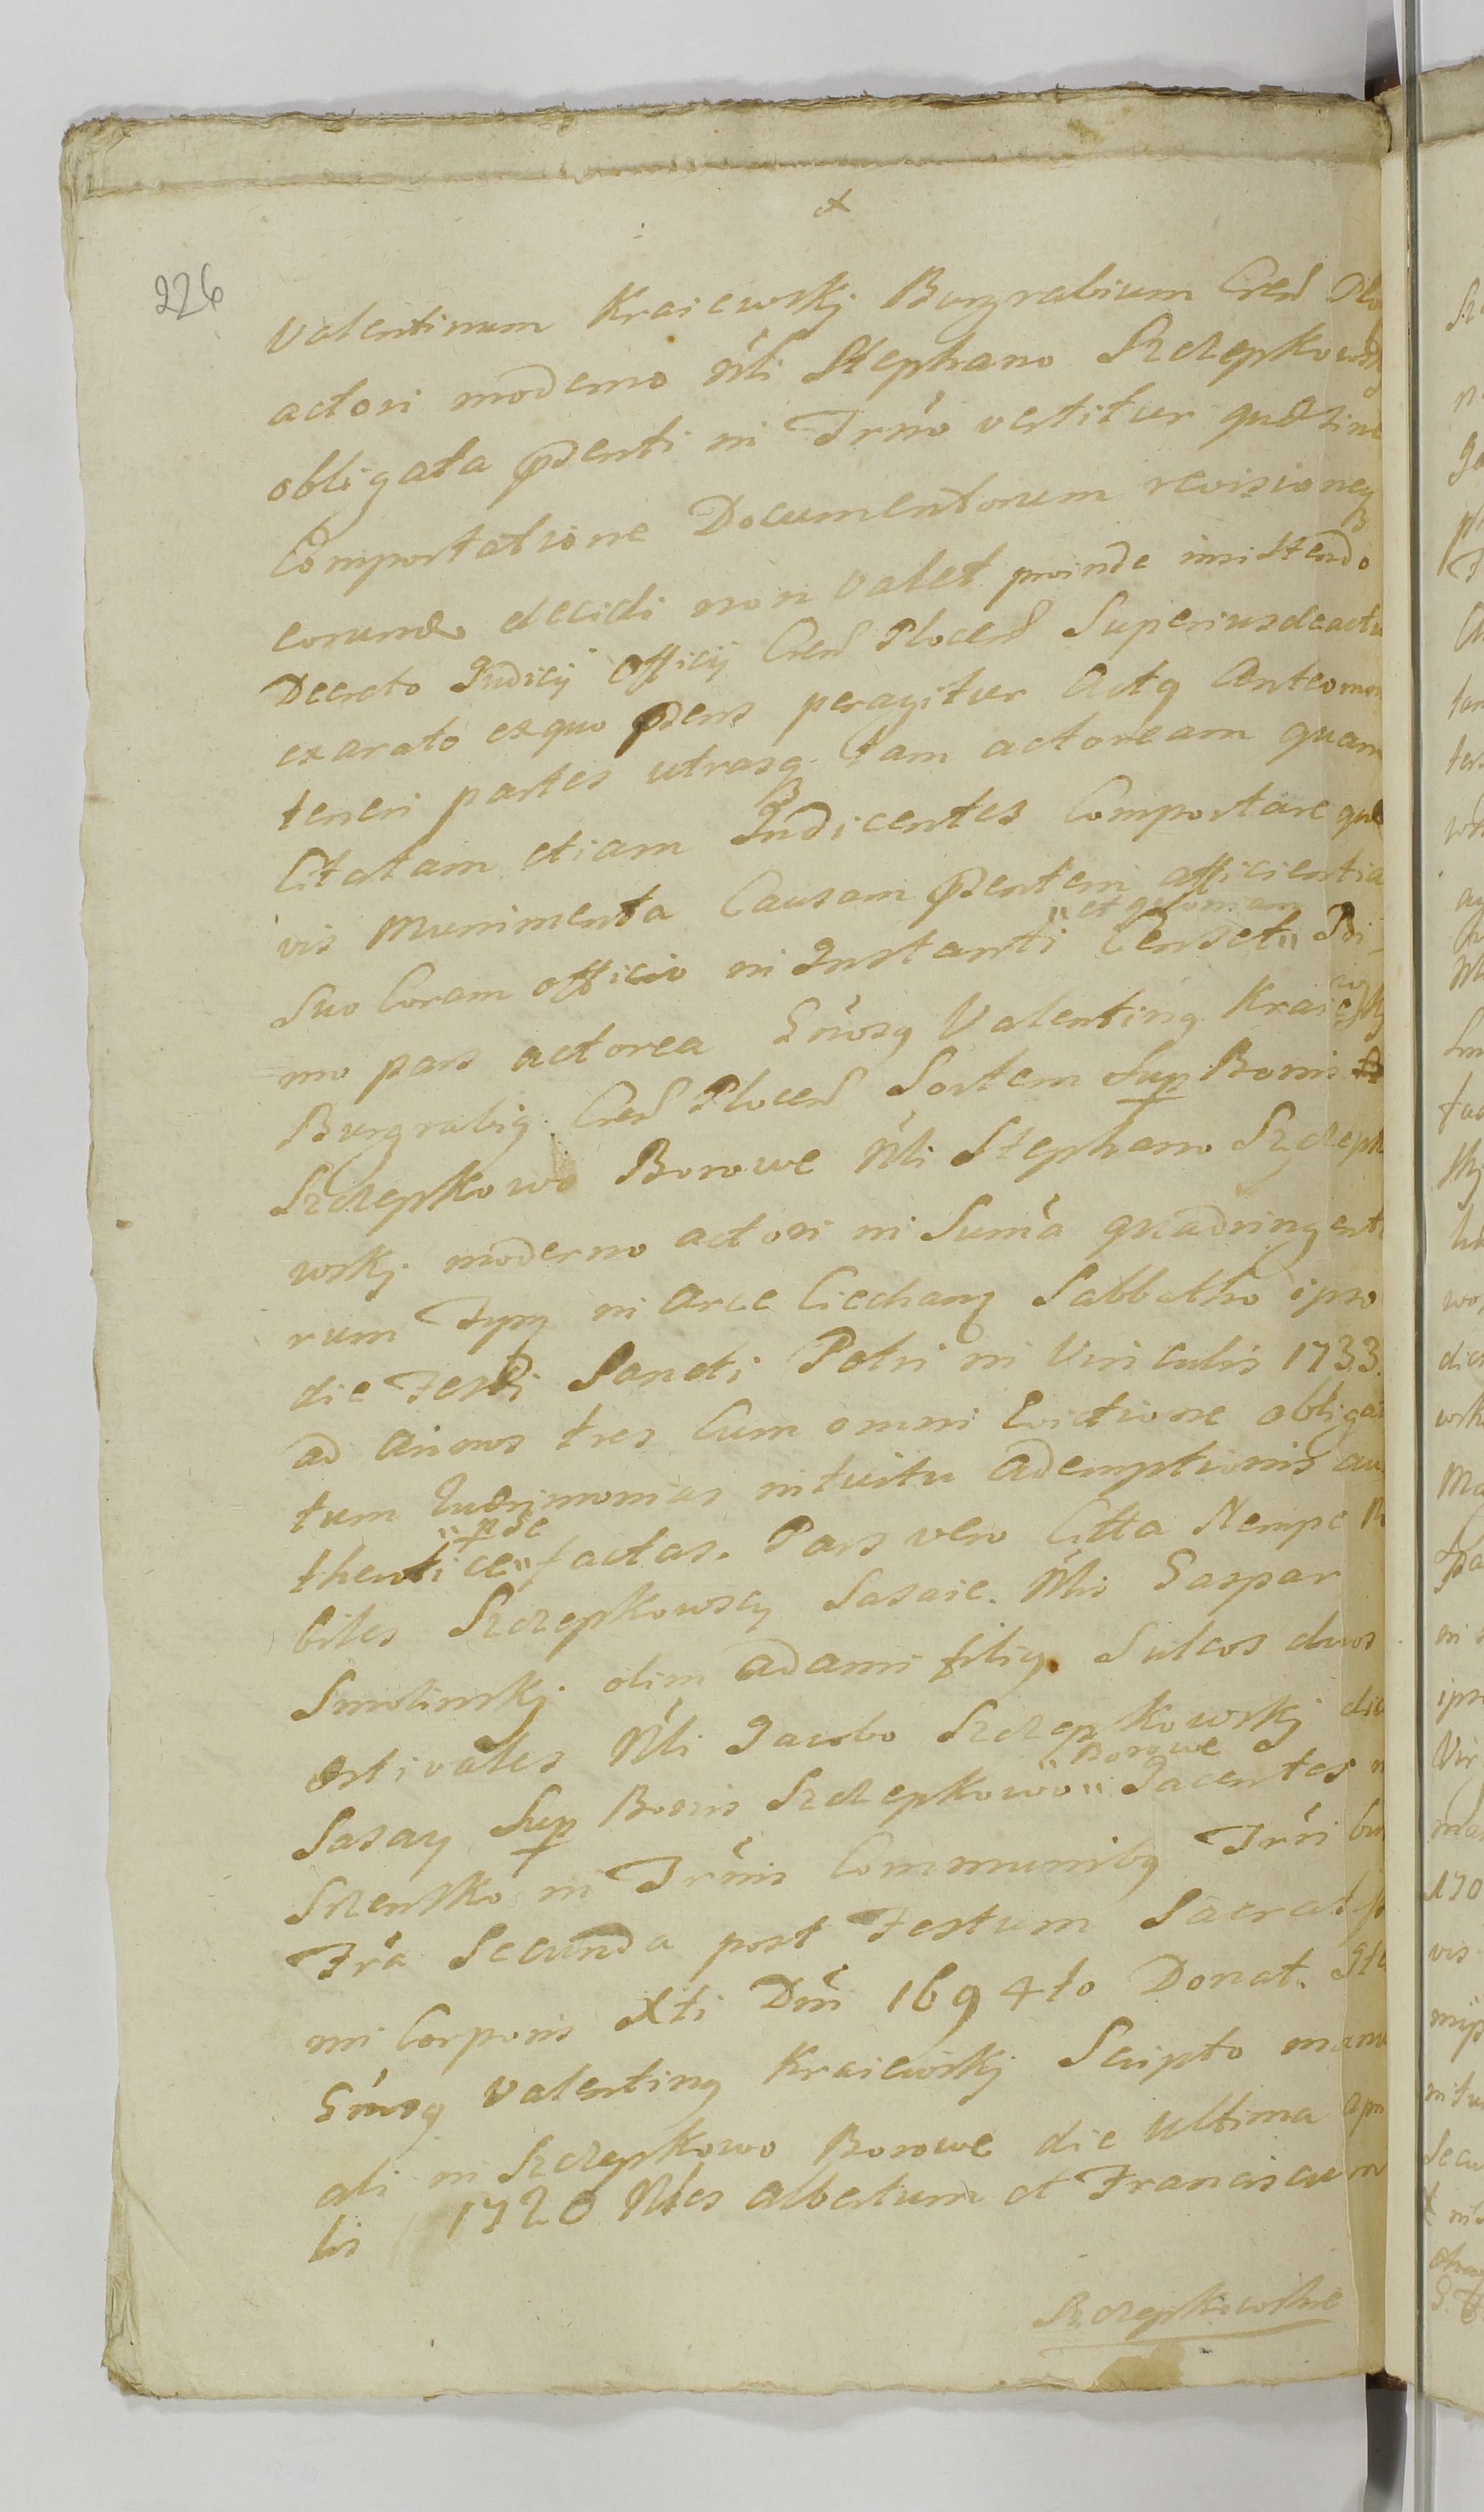 226
Valentinum Kraiewskj Burgrabium Cren̄ Plo
actori moderno Nli Stephano Szczepkowsk
obligata p̄denti in Trn̄o vertitur quæ sine
Comportatione Documentorum revisioneq3
eorund̄ decidi non valet proinde insistendo
Decreto Judicij Officij Cren̄ Plocen̄ Superius de actu
exarato ex quo p̄dens peragitur actq anteomn
teneri partes utrasq3 tam actoream quam
Citatam etiam Judicentes Comportare quæ
vis Munimenta Causam p̄dentem afficientia
Suo Coram officio in Instanti "et geloniam" Censet" Pri
mo pars actorea Gn̄osq Valentinq Kraiewskj
Burgrabiq Cren̄ Plocen̄ Sortem Sup Bonis
Szczepkowo Borowe Nli Stephano Szczepk
wskj moderno actori in Sum̄a quadringent
rum Typq in arce Ciechanq Sabbatho ipso
die Festi Sancti Petri in Vinculis 1733
ad annos tres Cum omni Evictione obliga
tum Querimonias intuitu ademptionis au
thentice" p se" factas. Pars vero Citta Nempe N
biles Szczepkowscy Sasaie. Nlis Gaspar
Smolinskj olim adami filiq. Sulcos duos
Estivales Nli Jacobo Szczepkowskj dic
Sasay Sup Bonis Szczepkowo" Borowe" Jacentes
Szrensko in Trn̄is Communibq Trri bu
Fr̄a Secunda post Festum Sacratiss
mi Corporis Xti Dn̄i 1694to Donat. Ite
Gn̄osq Valentinq Kraiewskj Scripto manu
ali in Szczepkowo Borowe die Ultima apri
lis 1720 Nles Albertum et Franciscum
Szczepkowskie